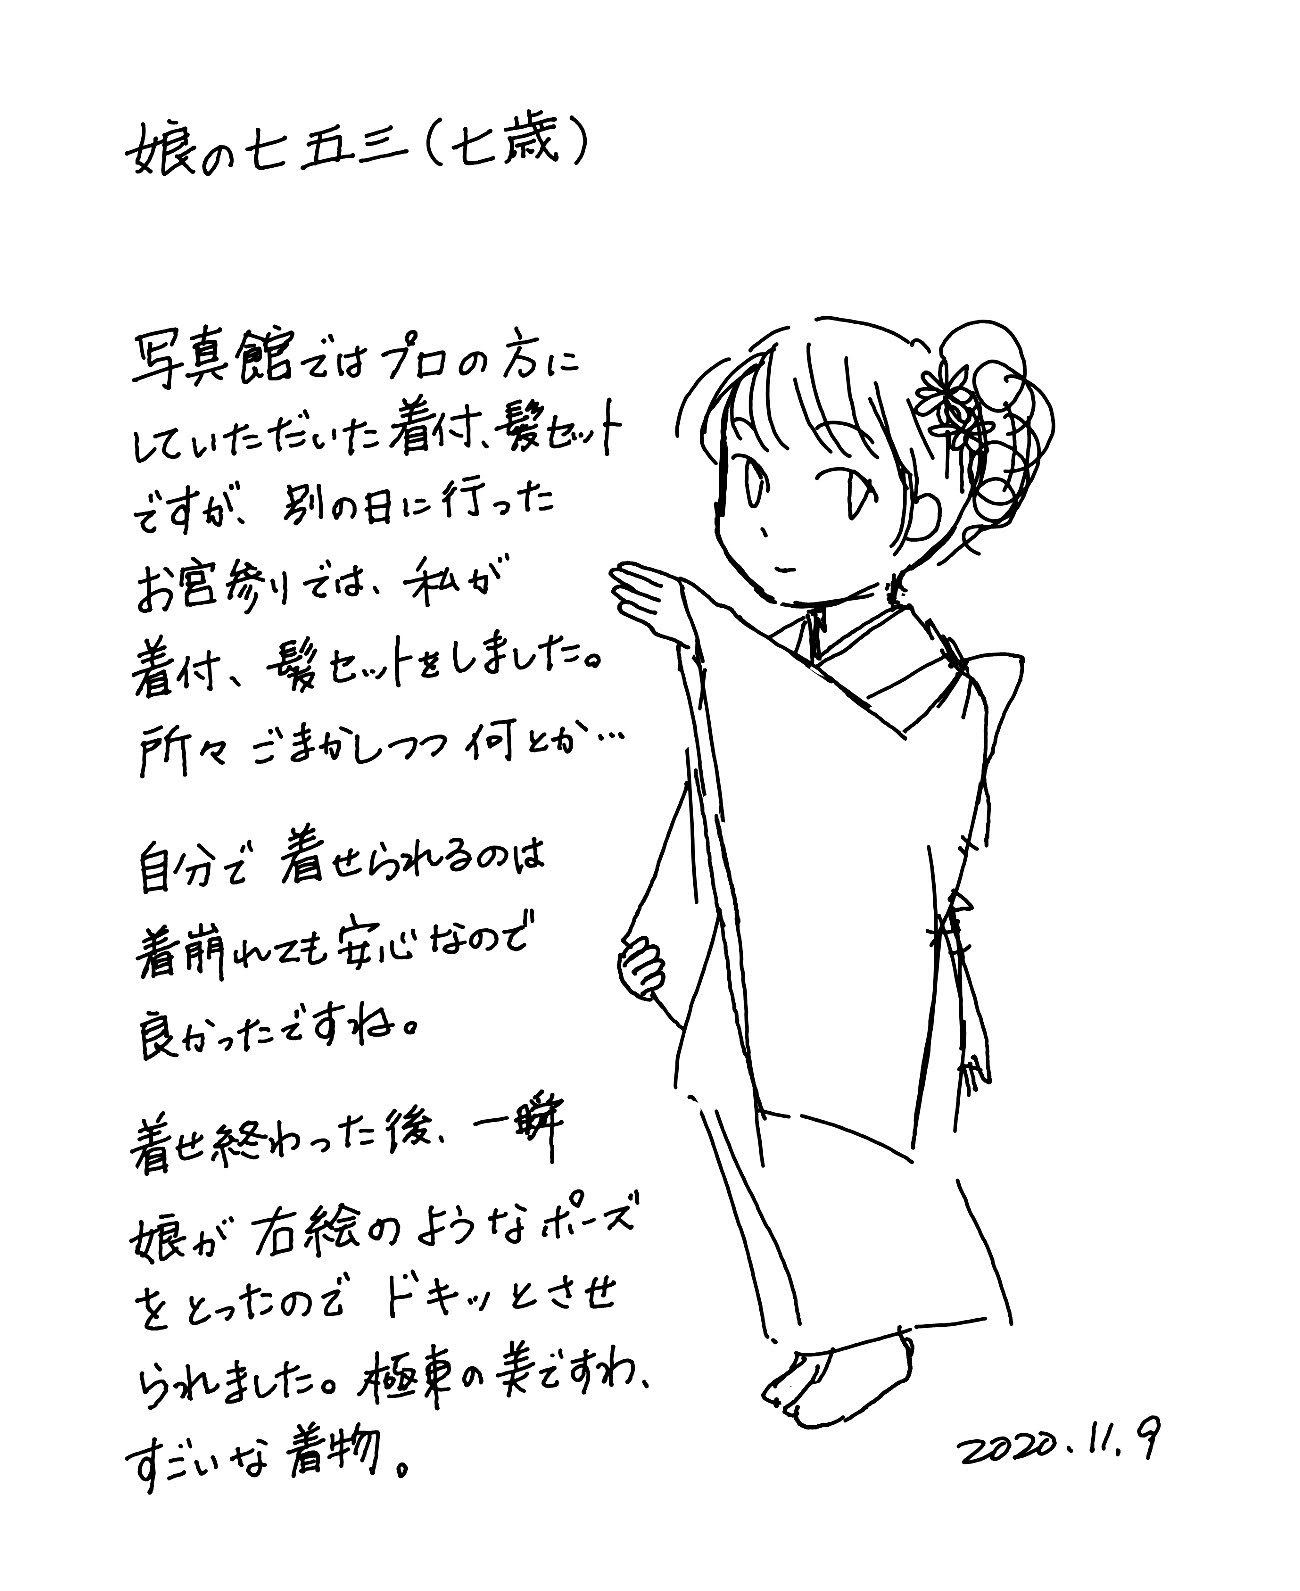 娘の七五三(七歳)
写真館ではプロの方に
していただいた着付、髪セット
ですが、別の日に行った
お宮参りでは、私が
着付、髪セットをしました。
所々ごまかしつつ何とか…
自分で着せられるのは
着崩れても安心なので
良かったですね。
着せ終わった後、一瞬
娘が右絵のようなポーズ
をとったのでドキッとさせ
られました。極東の美ですわ、
すごいな着物。
2020.11.9